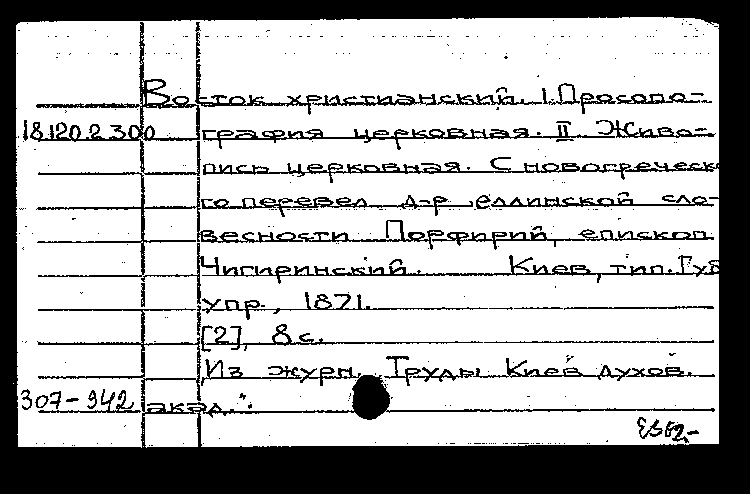 Восток христианский. I. Просопо-
18.120.2.300 графия церковная. II Живо-
пись церковная. С новогреческо
го перевел д-р еллинской сло-
весности Порфирий, епископ
Чигиринский. Киев, тип. Губ
упр., 1871.
[2], 8 с.
Из журн. Труды Киев духов.
307-942 акад.".